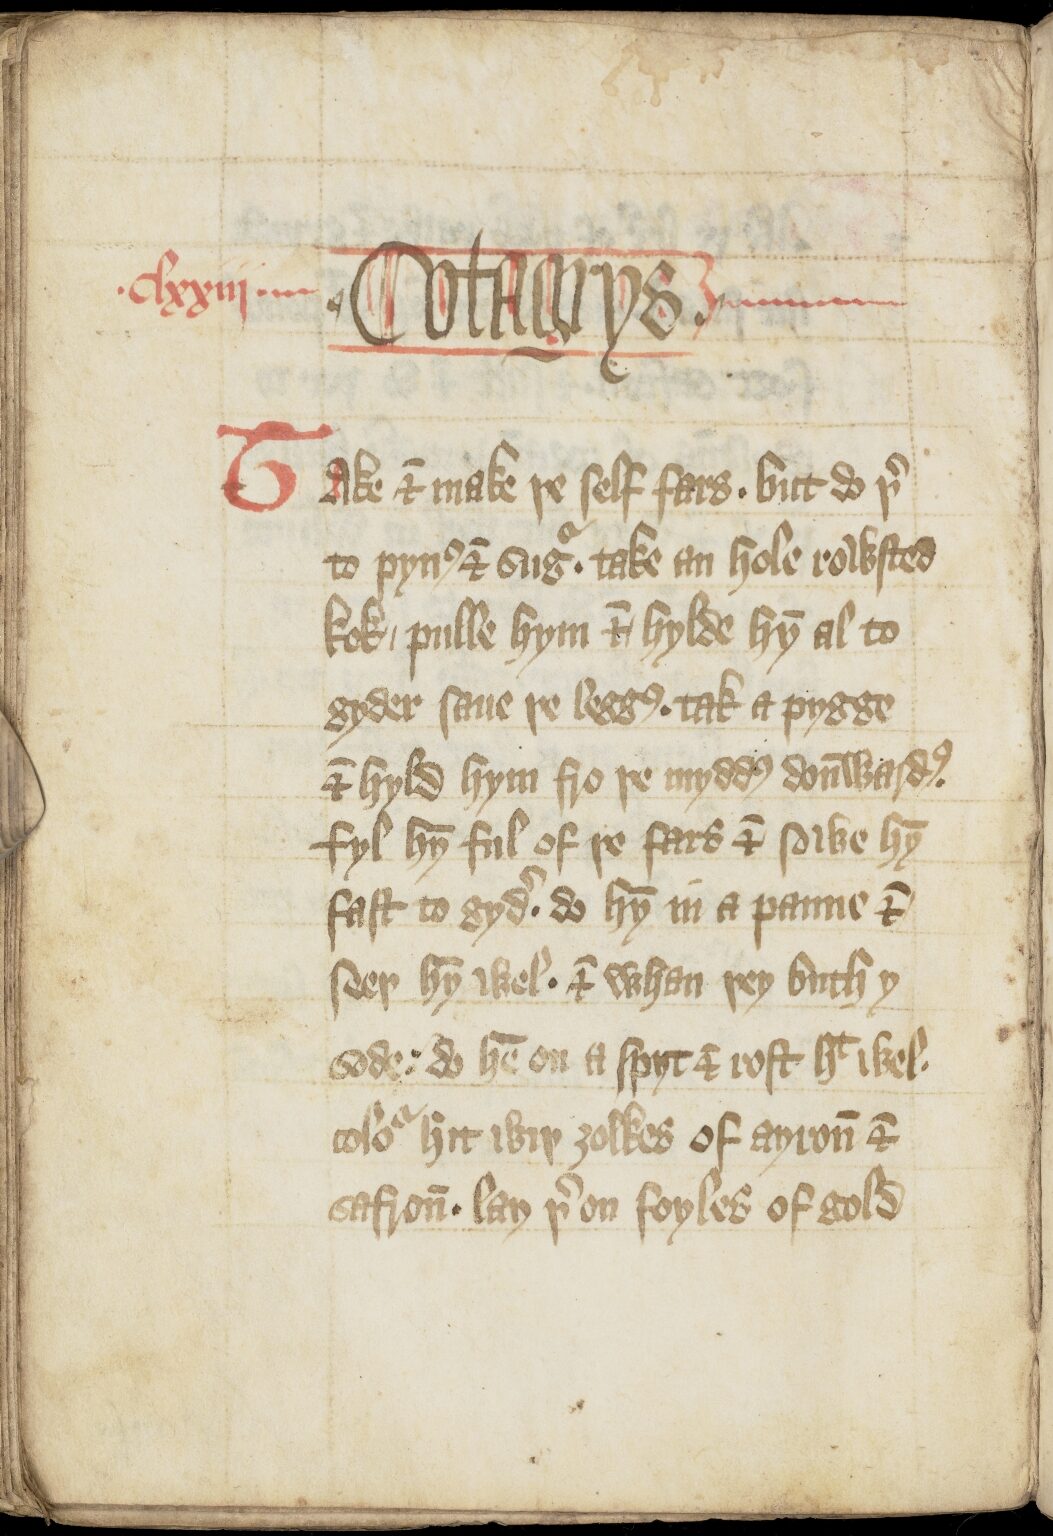 .clxxiii.
.Cotagrys.
Take ⁊ make þe self fars. but do þ͛
to pynꝰ ⁊ sugᵃ. take an hole rowsted
kok, pulle hym ⁊ hylde hȳ al to
gyder saue þe leggꝰ. tak a pygge
⁊ hyld hym fro þe myddꝰ dou̅wardꝰ.
fyl hȳ ful of þe fars ⁊ sowe hȳ
fast to gyd͛. do hȳ in a panne ⁊
seeþ hȳ wel. ⁊ whan þey buth y
sode: do hē on a spyt ⁊ rost hᵗ wel.
coloᵃ hit wiþ ȝolkes of ayron̅ ⁊
safron̅. lay þ͛ on foyles of gold